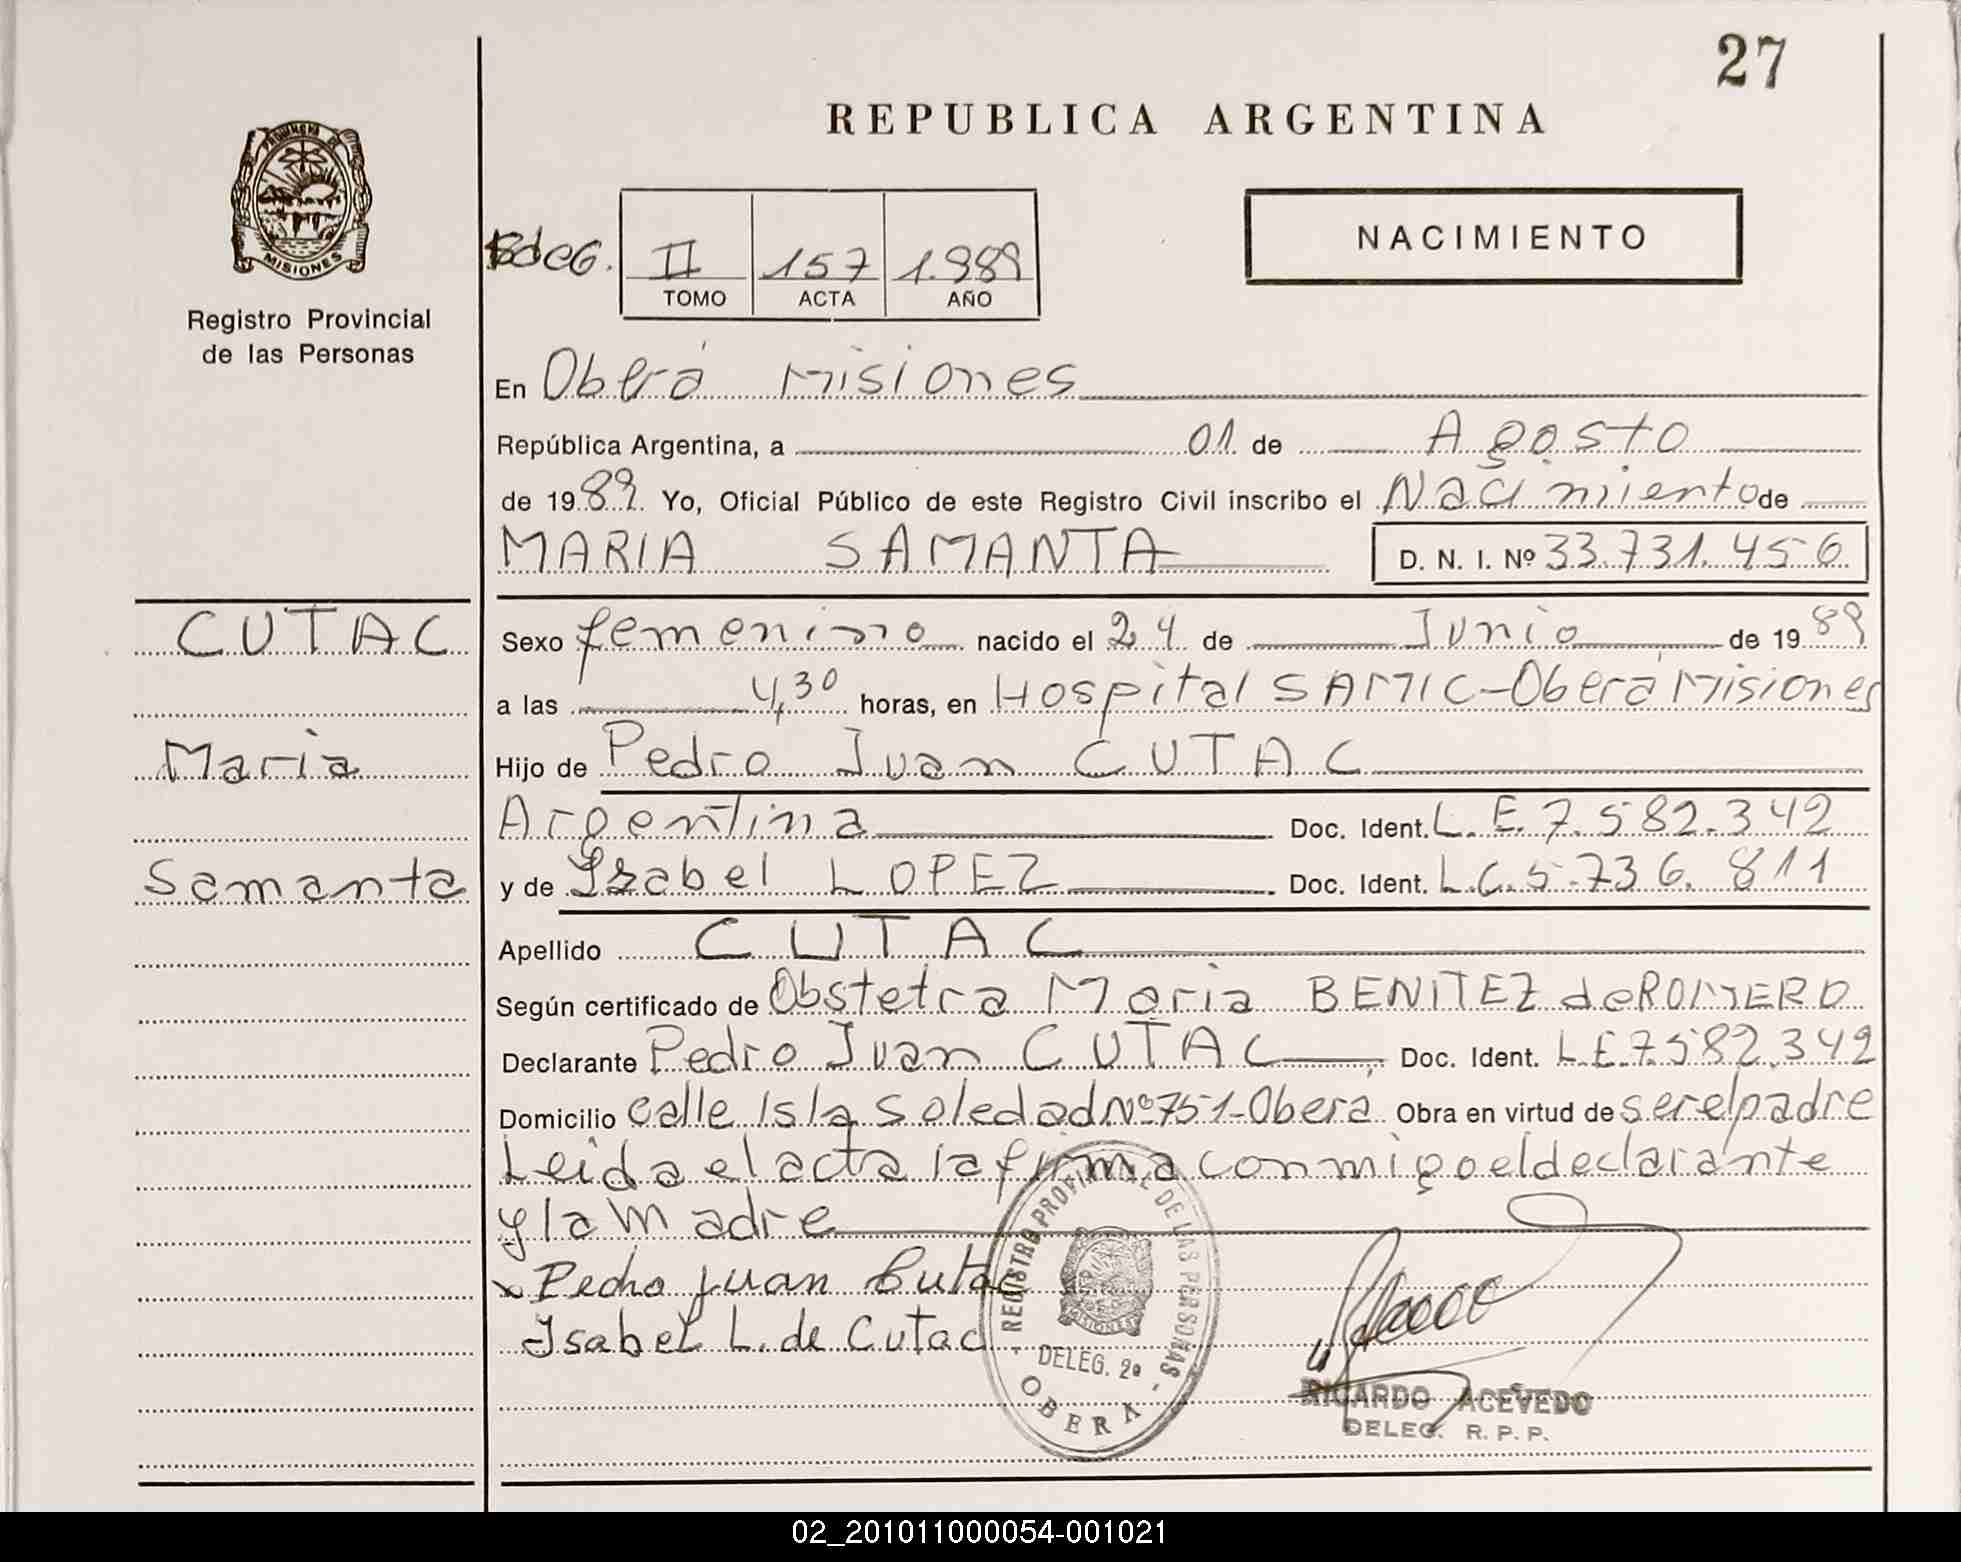 27
REPUBLICA ARGENTINA
PROVINCIA DE
MISIONES
Registro Provincial
de las Personas
deG.
II 157 1.989
TOMO ACTA AÑO
NACIMIENTO
En Oberá Misiones
República Argentina, a 01 de Agosto
de 1989 Yo, Oficial Público de este Registro Civil inscribo el Nacimiento de
MARIA SAMANTA D. N. I. Nº 33.731.456
CUTAC
Maria
Samanta
Sexo femenino nacido el 24 de Junio de 1989
a las 4,30 horas, en Hospital SAMIC-Oberá Misiones
Hijo de Pedro Juan CUTAC
Argentina Doc. Ident. L.E.7.582.342
y de Isabel LOPEZ Doc. Ident. L.C.5.736.811
Apellido CUTAC
Según certificado de Obstetra Maria BENITEZ de ROMERO
Declarante Pedro Juan CUTAC Doc. Ident. L.E 7.582.342
Domicilio calle Isla Soledad Nº 751-Oberá Obra en virtud de ser el padre
Leida el acta la firma conmigo el declarante
y la madre
x Pedro Juan Cutac
Isabel L. de Cutac
REGISTRO PROVINCIAL DE LAS PERSONAS
MISIONES
DELEG. 2ª
OBERA
RICARDO ACEVEDO
DELEG. R. P. P.
02_201011000054-001021